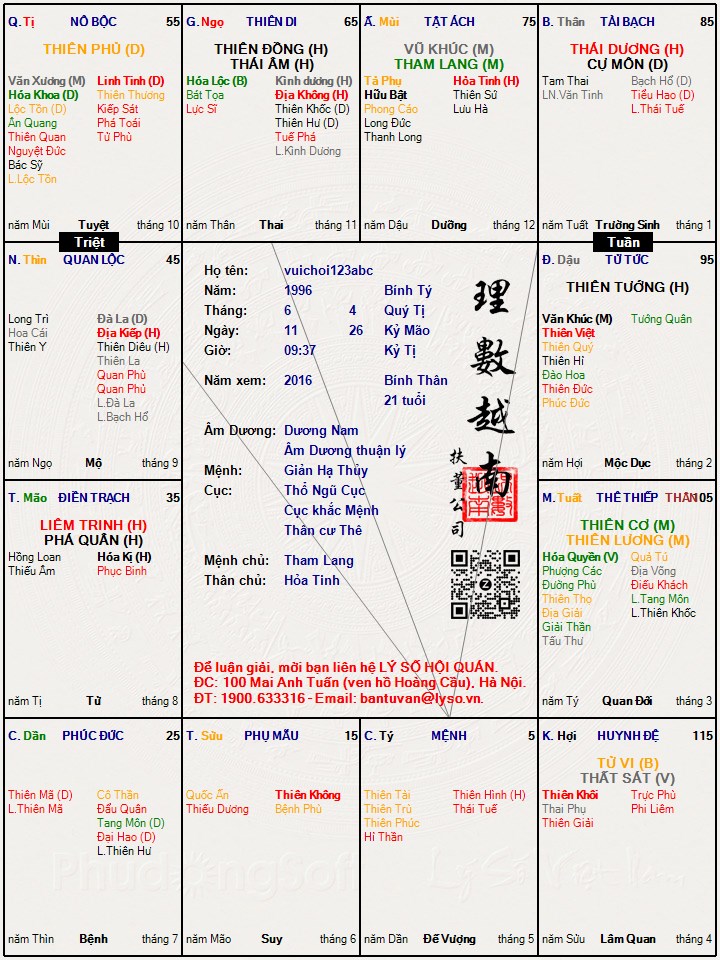 Q. Tị NÔ BỘC 55
THIÊN PHỦ (D)
Văn Xương (M) Linh Tinh (D)
Hóa Khoa (D) Thiên Thương
Lộc Tồn (D) Kiếp Sát
Ân Quang Phá Toái
Thiên Quan Tử Phù
Nguyệt Đức
Bác Sỹ
L.Lộc Tồn
năm Mùi Tuyệt tháng 10
G. Ngọ THIÊN DI 65
THIÊN ĐỒNG (H)
THÁI ÂM (H)
Hóa Lộc (B) Kình dương (H)
Bát Tọa Địa Không (H)
Lực Sĩ Thiên Khốc (D)
Thiên Hư (D)
Tuế Phá
L.Kình Dương
năm Thân Thai tháng 11
Ấ. Mùi TẬT ÁCH 75
VŨ KHÚC (M)
THAM LANG (M)
Tả Phụ Hỏa Tinh (H)
Hữu Bật Thiên Sứ
Phong Cáo Lưu Hà
Long Đức
Thanh Long
năm Dậu Dưỡng tháng 12
B. Thân TÀI BẠCH 85
THÁI DƯƠNG (H)
CỰ MÔN (D)
Tam Thai Bạch Hổ (D)
LN.Văn Tinh Tiểu Hao (D)
L.Thái Tuế
năm Tuất Trường Sinh tháng 1
Triệt
Tuần
N. Thìn QUAN LỘC 45
Long Trì Đà La (D)
Hoa Cái Địa Kiếp (H)
Thiên Y Thiên Diêu (H)
Thiên La
Quan Phù
Quan Phủ
L.Đà La
L.Bạch Hổ
năm Ngọ Mộ tháng 9
Họ tên: vuichoi123abc
Năm: 1996 Bính Tý
Tháng: 6 4 Quý Tị
Ngày: 11 26 Kỷ Mão
Giờ: 09:37 Kỷ Tị
Năm xem: 2016 Bính Thân
21 tuổi
Âm Dương: Dương Nam
Âm Dương thuận lý
Mệnh: Giản Hạ Thủy
Cục: Thổ Ngũ Cục
Cục khắc Mệnh
Thân cư Thê
Mệnh chủ: Tham Lang
Thân chủ: Hỏa Tinh
理數越南
扶董公司
Để luận giải, mời bạn liên hệ LÝ SỐ HỘI QUÁN.
ĐC: 100 Mai Anh Tuấn (ven hồ Hoàng Cầu), Hà Nội.
ĐT: 1900.633316 - Email: bantuvan@lyso.vn.
Đ. Dậu TỬ TỨC 95
THIÊN TƯỚNG (H)
Văn Khúc (M) Tướng Quân
Thiên Việt
Thiên Quý
Thiên Hỉ
Đào Hoa
Thiên Đức
Phúc Đức
năm Hợi Mộc Dục tháng 2
T. Mão ĐIỀN TRẠCH 35
LIÊM TRINH (H)
PHÁ QUÂN (H)
Hồng Loan Hóa Kị (H)
Thiếu Âm Phục Binh
năm Tị Tử tháng 8
M. Tuất THÊ THIẾP THÂN 105
THIÊN CƠ (M)
THIÊN LƯƠNG (M)
Hóa Quyền (V) Quả Tú
Phượng Các Địa Võng
Đường Phù Điếu Khách
Thiên Thọ L.Tang Môn
Địa Giải L.Thiên Khốc
Giải Thần
Tấu Thư
năm Tý Quan Đới tháng 3
C. Dần PHÚC ĐỨC 25
Thiên Mã (D) Cô Thần
L.Thiên Mã Đẩu Quân
Tang Môn (D)
Đại Hao (D)
L.Thiên Hư
năm Thìn Bệnh tháng 7
T. Sửu PHỤ MẪU 15
Quốc Ấn Thiên Không
Thiếu Dương Bệnh Phù
năm Mão Suy tháng 6
C. Tý MỆNH 5
Thiên Tài Thiên Hình (H)
Thiên Trù Thái Tuế
Thiên Phúc
Hỉ Thần
năm Dần Đế Vượng tháng 5
K. Hợi HUYNH ĐỆ 115
TỬ VI (B)
THẤT SÁT (V)
Thiên Khôi Trực Phù
Thai Phụ Phi Liêm
Thiên Giải
năm Sửu Lâm Quan tháng 4
PhudongSoft
Lý Số Việt Nam